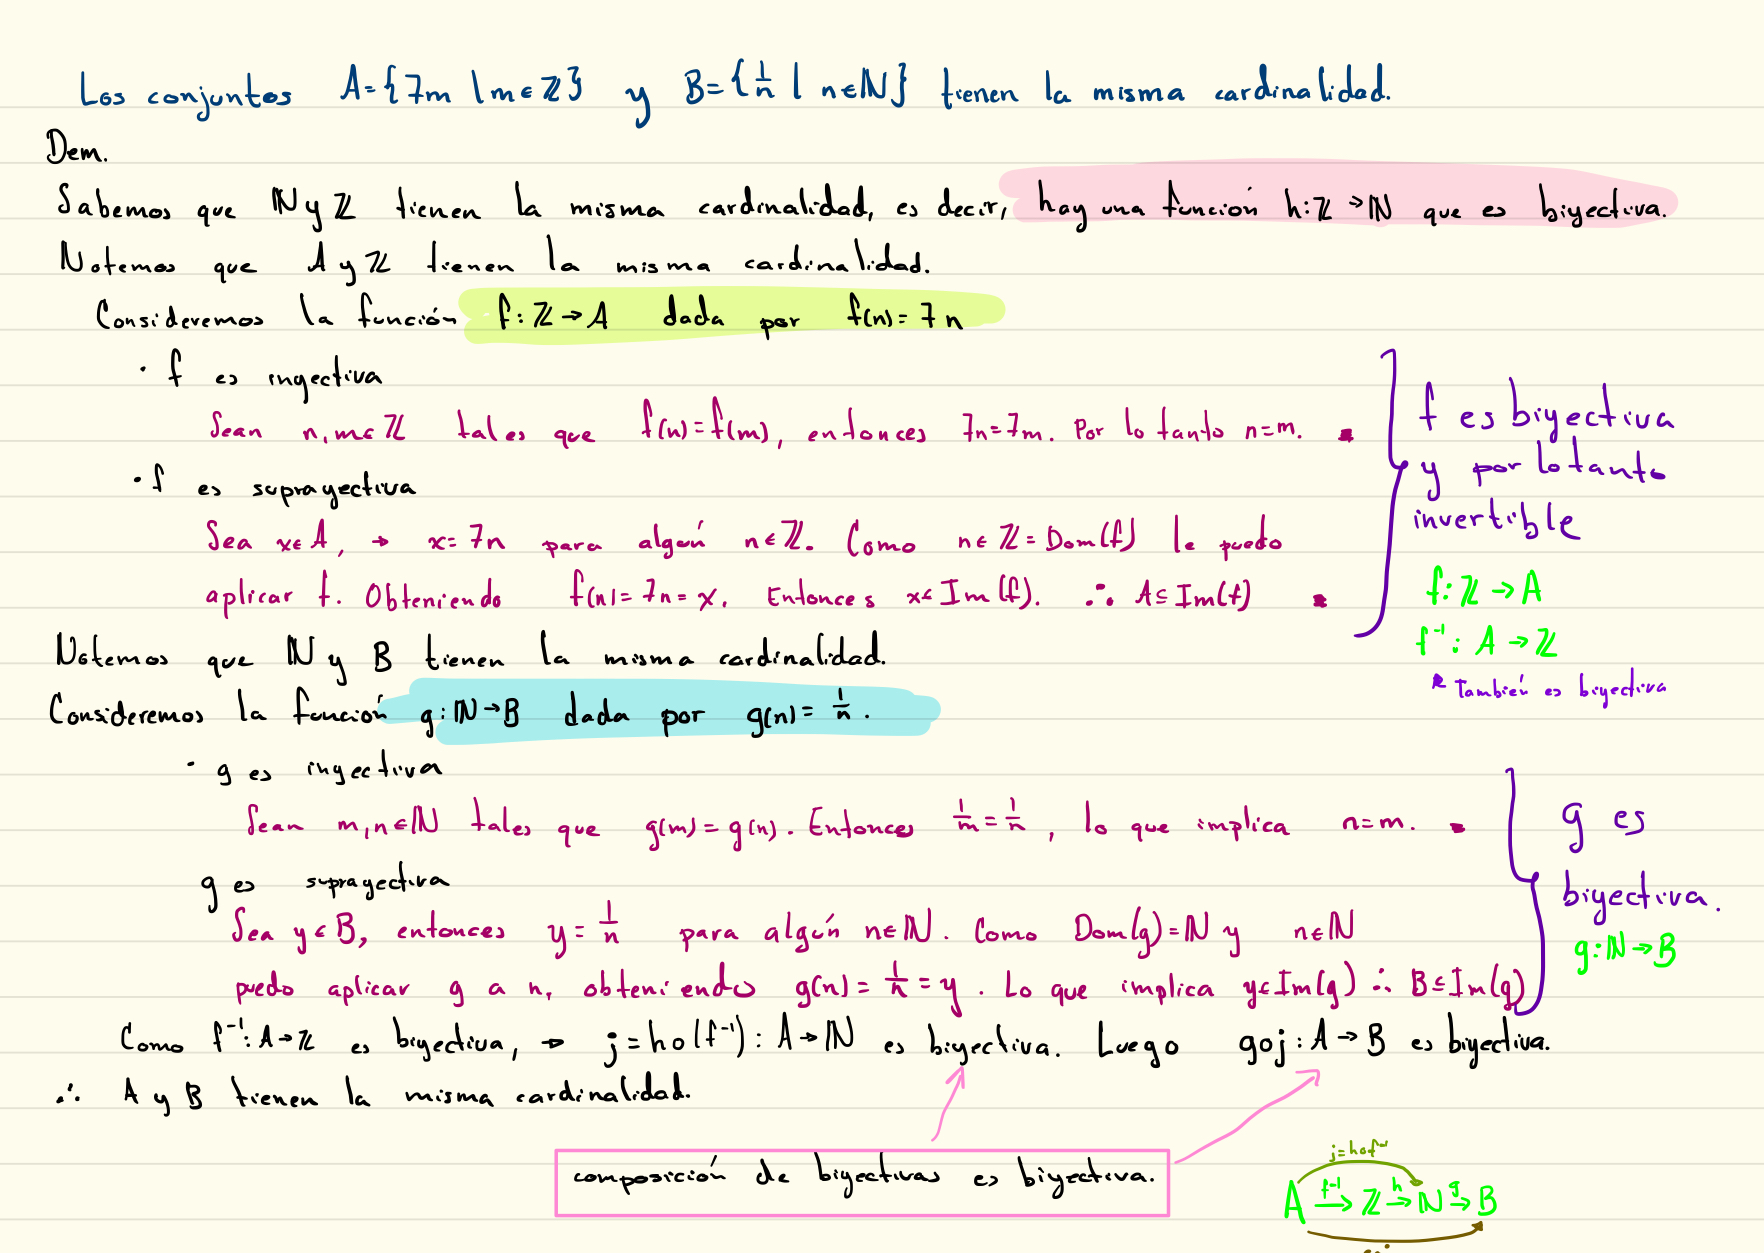 Los conjuntos A={7m | m∈ℤ} y B={1/n | n∈ℕ} tienen la misma cardinalidad.
Dem.
Sabemos que ℕ y ℤ tienen la misma cardinalidad, es decir, hay una función h:ℤ→ℕ que es biyectiva.
Notemos que A y ℤ tienen la misma cardinalidad.
Consideremos la función f:ℤ→A dada por f(n)=7n
· f es inyectiva
Sean n,m∈ℤ tales que f(n)=f(m), entonces 7n=7m. Por lo tanto n=m. ▪
· f es suprayectiva
Sea x∈A, → x=7n para algún n∈ℤ. Como n∈ℤ=Dom(f) le puedo
aplicar f. Obteniendo f(n)=7n=x. Entonces x∈Im(f). ∴ A⊆Im(f) ▪
f es biyectiva
y por lo tanto
invertible
f:ℤ→A
f⁻¹:A→ℤ
* También es biyectiva
Notemos que ℕ y B tienen la misma cardinalidad.
Consideremos la función g:ℕ→B dada por g(n)=1/n.
· g es inyectiva
Sean m,n∈ℕ tales que g(m)=g(n). Entonces 1/m=1/n, lo que implica n=m. ▪
g es suprayectiva
Sea y∈B, entonces y=1/n para algún n∈ℕ. Como Dom(g)=ℕ y n∈ℕ
puedo aplicar g a n, obteniendo g(n)=1/n=y. Lo que implica y∈Im(g) ∴ B⊆Im(g)
g es
biyectiva.
g:ℕ→B
Como f⁻¹:A→ℤ es biyectiva, → j=h∘(f⁻¹):A→ℕ es biyectiva. Luego g∘j:A→B es biyectiva.
∴ A y B tienen la misma cardinalidad.
composición de biyectivas es biyectiva.
j=h∘f⁻¹
A f⁻¹→ ℤ h→ ℕ g→ B